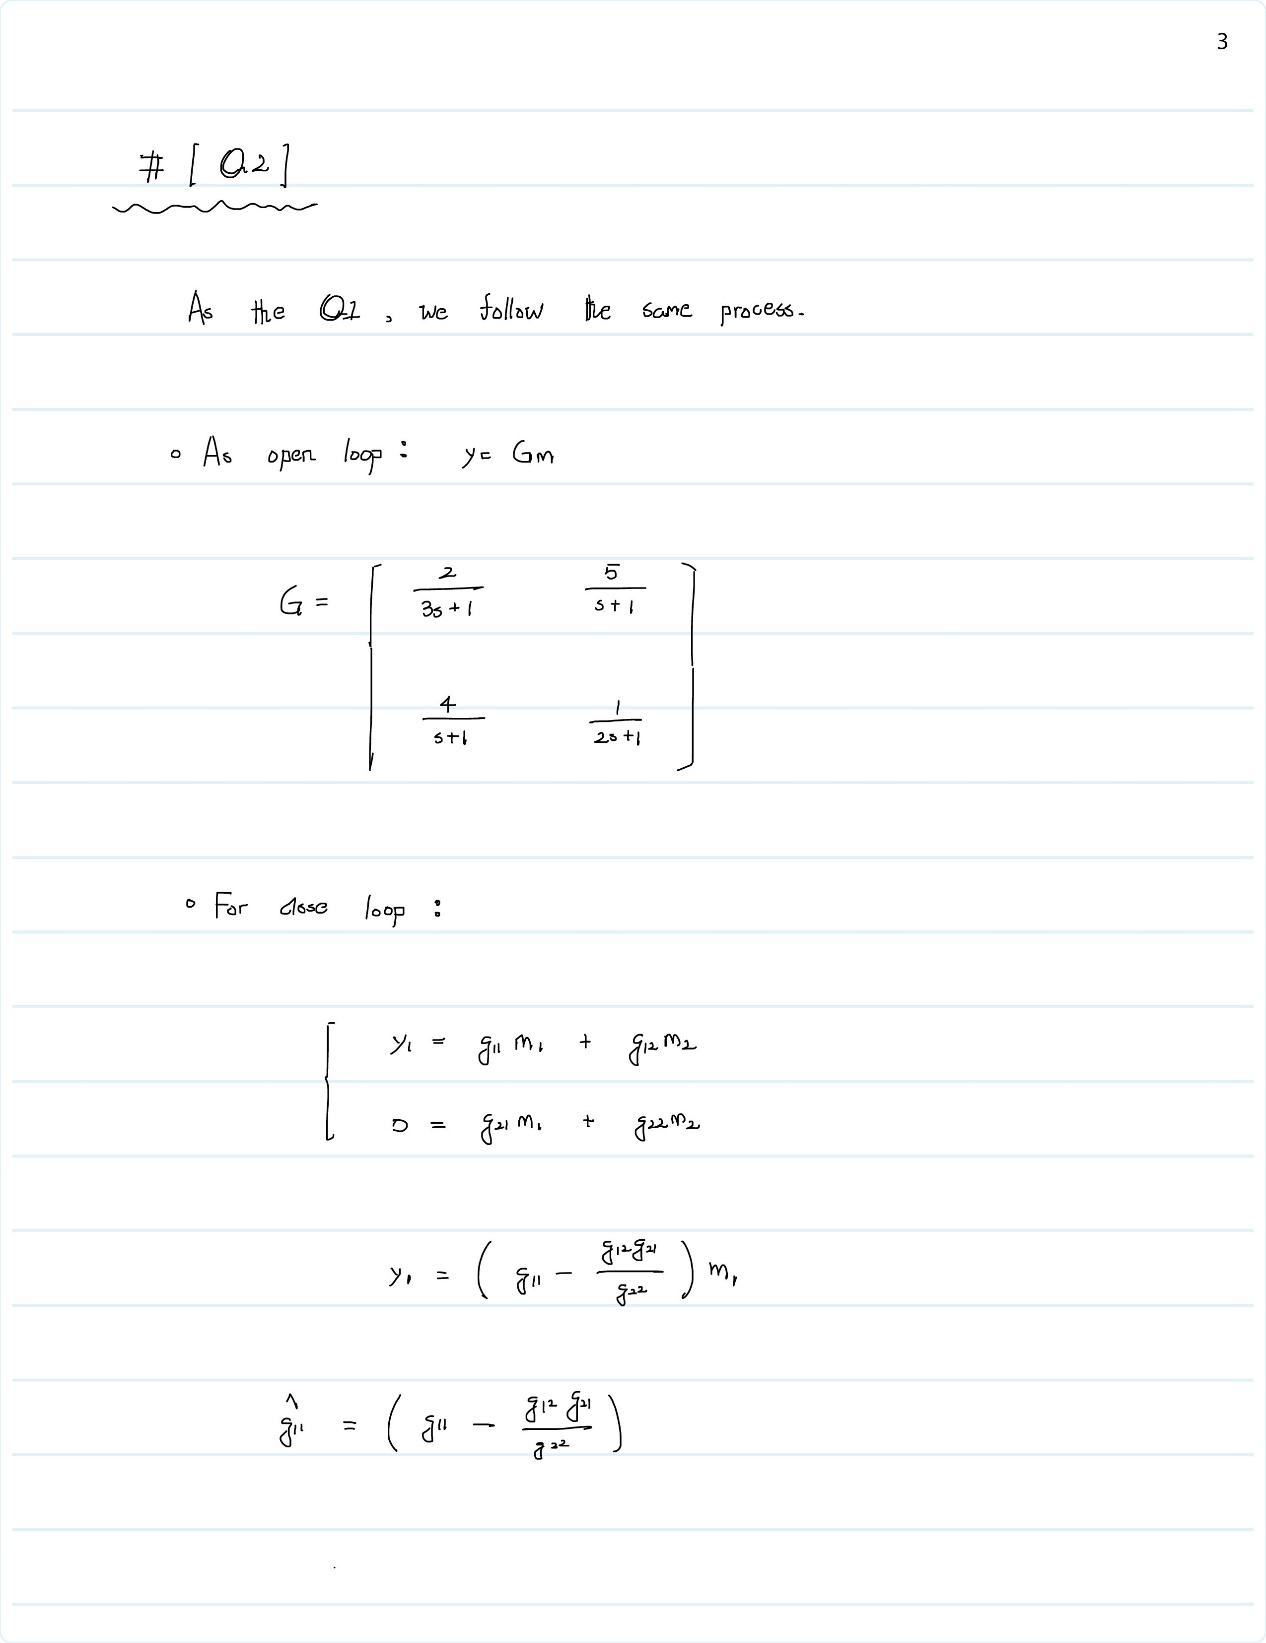 3
# [ Q2 ]
As the Q1 , we follow the same process.
∘ As open loop : y = Gm
G = [ 2/(3s+1) 5/(s+1)
4/(s+1) 1/(2s+1) ]
∘ For close loop :
y₁ = g₁₁ m₁ + g₁₂ m₂
0 = g₂₁ m₁ + g₂₂ m₂
y₁ = ( g₁₁ − g₁₂g₂₁/g₂₂ ) m₁
ĝ₁₁ = ( g₁₁ − g₁₂ g₂₁/g₂₂ )